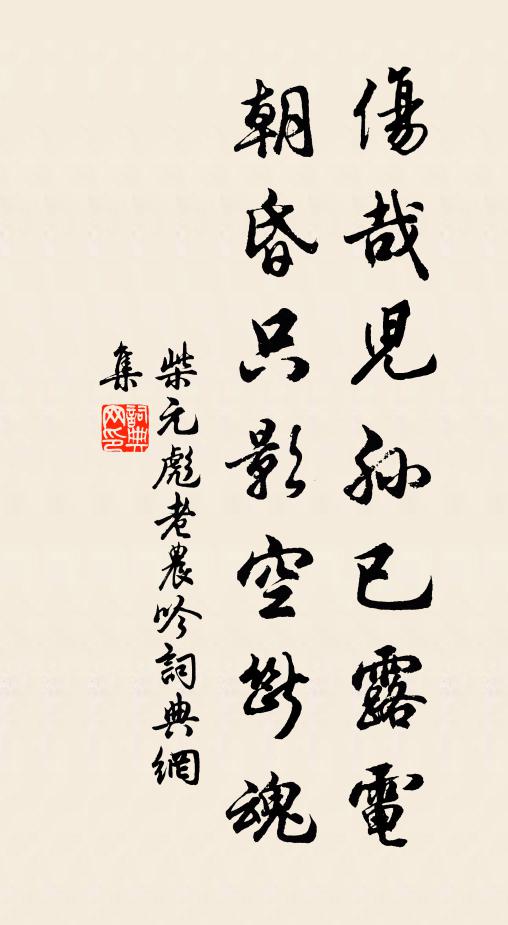 傷哉兒孫已露電
朝昏只影空斷魂
柴元彪老農吟詞典網
集
詞典
网印